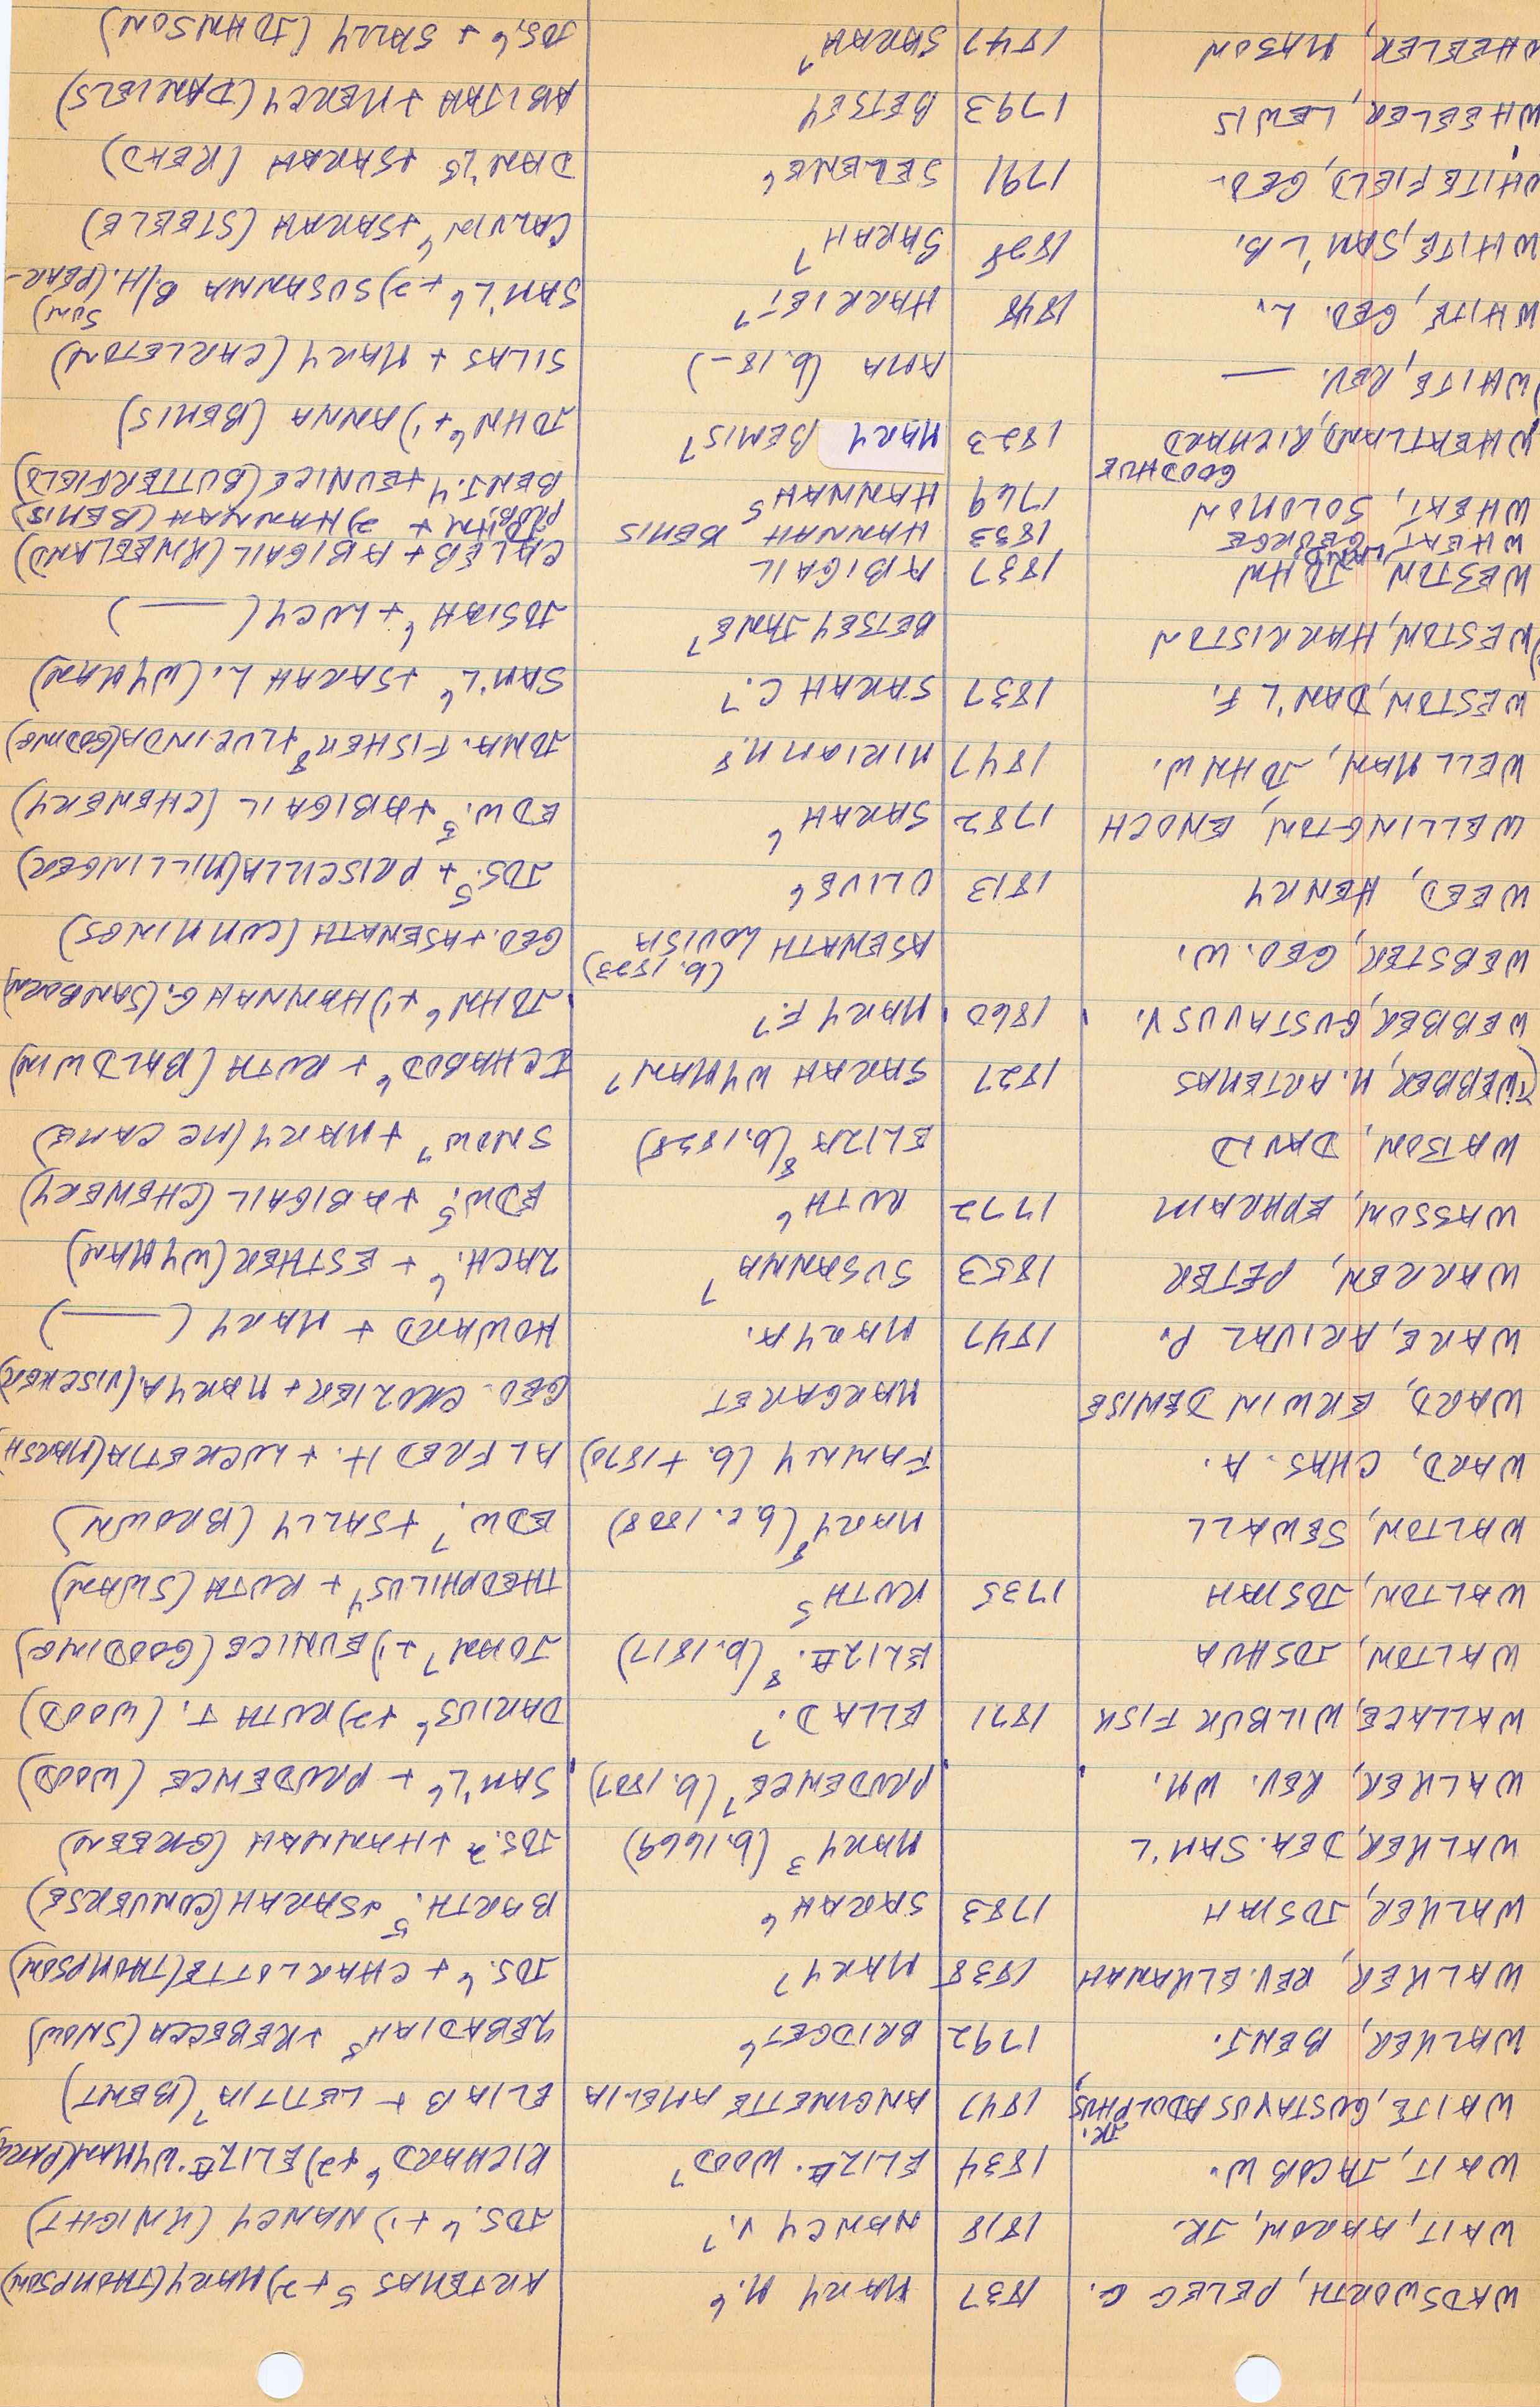 WADSWORTH, PELEG C. 1837 MARY M.6 ARTEMAS5 +2) MARY (THOMPSON)
WAIT, AARON, JR. 1818 NANCY V.7 JOS.6 +1) NANCY (KNIGHT)
WAIT, JACOB W. 1834 ELIZ. WOOD7 RICHARD6 +2) ELIZ. WYMAN (PARKER)
WAITE, GUSTAVUS ADOLPHUS, JR. 1847 ANGINETTE AMELIA ELIAB + LETITIA7 (BENT)
WALKER, BENJ. 1792 BRIDGET6 ZEBADIAH5 + REBECCA (SNOW)
WALKER, REV. ELKANAH 1838 MARY7 JOS.6 + CHARLOTTE (THOMPSON)
WALKER, JOSIAH 1783 SARAH6 BARTH.5 + SARAH (CONVERSE)
WALKER, DEA. SAM'L MARY3 (b. 1669) JOS.2 + HANNAH (GREEN)
WALKER, REV. WM. PRUDENCE7 (b. 1807) SAM'L6 + PRUDENCE (WOOD)
WALLACE, WILBUR FISK 1871 ELLA D.7 DARIUS6 +2) RUTH T. (WOOD)
WALTON, JOSHUA ELIZ.8 (b. 1817) JOHN7 +1) EUNICE (GOODING)
WALTON, JOSIAH 1735 RUTH5 THEOPHILUS4 + RUTH (SWAN)
WALTON, SEWALL MARY8 (b. c. 1808) EDW.7 + SALLY (BROWN)
WARD, CHAS. A. FANNY (b. + 1870) ALFRED H. + LUCRETIA (MARSH)
WARD, ERWIN DENISE MARGARET GEO. CROZIER + MARY A. (VISCHER)
WARE, ARIVAL P. 1847 MARY A. HOWARD + MARY ( — )
WARREN, PETER 1853 SUSANNA7 ZACH.6 + ESTHER (WYMAN)
WASSON, EPHRAIM 1772 RUTH6 EDW.5 + ABIGAIL (CHENERY)
WASON, DAVID ELIZA8 (b. 1828) SNOW7 + MARY (MC CANE)
WEBBER, M. ARTEMAS 1827 SARAH WYMAN7 ICHABOD6 + RUTH (BALDWIN)
WEBBER, GUSTAVUS V. 1860 MARY F.7 JOHN6 +1) HANNAH G. (SANBORN)
WEBSTER, GEO. W. ASENATH LOUISA (b. 1823) GEO. + ASENATH (CUMMINGS)
WEED, HENRY 1813 OLIVE6 JOS.5 + PRISCILLA (MILLINGER)
WELLINGTON, ENOCH 1782 SARAH6 EDW.5 + ABIGAIL (CHENERY)
WELLMAN, JOHN W. 1847 MIRIAM M.8 JONA. FISHER8 + LUVINDA (GOODING)
WESTON, DAN'L F. 1837 SARAH C.7 SAM'L6 + SARAH L. (WYMAN)
WESTON, HARRISTON BETSEY JANE7 JOSIAH6 + LUCY ( — )
WESTON JOHN 1837 ABIGAIL CALEB + ABIGAIL (KNEELAND)
WHEATLAND, GEORGE 1833 HANNAH BEMIS PROB. JOHN + 2) HANNAH (BEMIS)
WHEAT, SOLOMON 1769 HANNAH5 BENJ.4 + EUNICE (BUTTERFIELD)
WHEATLAND, RICHARD GOODHUE 1823 MARY BEMIS7 JOHN6 +1) ANNA (BEMIS)
WHITE, REV. — ANA (b. 18-) SILAS + MARY (CARLETON)
WHITE, GEO. L. 1848 HARRIET7 SAM'L6 +2) SUSANNA B./H. (PEARSON)
WHITE, SAM'L B. 1828 SARAH7 CALVIN6 + SARAH (STEELE)
WHITEFIELD, GEO. 1791 SELENE6 DAN'L5 + SARAH (READ)
WHEELER, LEWIS 1793 BETSEY ABIJAH + MERCY (DANIELS)
WHEELER, MASON 1847 SARAH7 JOS.6 + SALLY (JOHNSON)